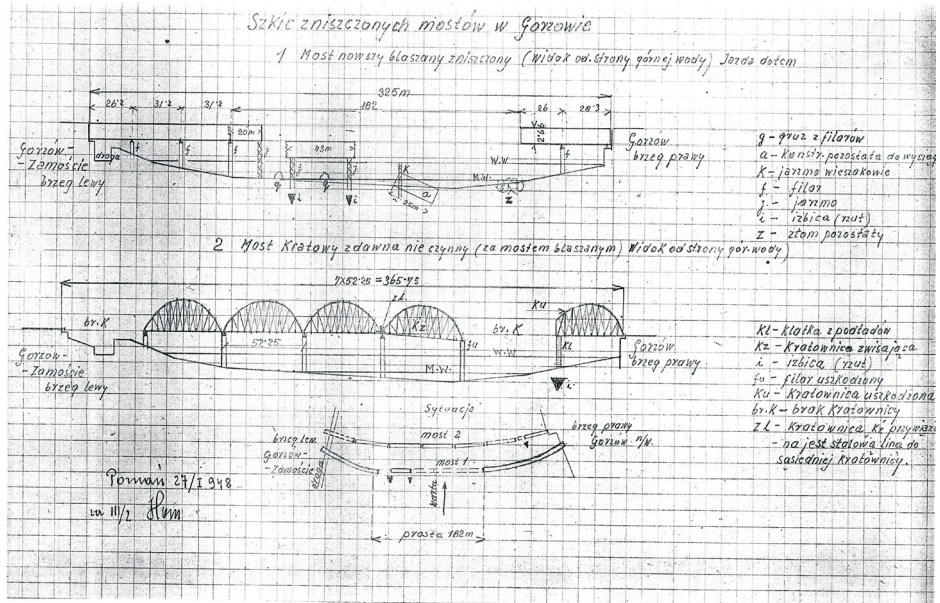 Szkic zniszczonych mostów w Gorzowie
1 Most nowszy blaszany zniszczony (Widok od strony górnej wody) Jazda dołem
325m
26·2 31·2 31·2 162 26 26·3
20m
43m
2.99
droga
f f f f
Gorzow-
-Zamoście
brzeg lewy
W.W
M.W.
K
a
25m
g g
i i
z
Gorzów
brzeg prawy
g - gruz z filarów
a - konstr. pozostała do wyciąg
K - jarzmo wieszakowe
f - filar
j - jarzmo
i - izbica (rzut)
Z - złom pozostały
2 Most Kratowy zdawna nie czynny (za mostem blaszanym) Widok od strony gór. wody)
7x52·25 = 365·75
zł.
Ku
br.K
Kz
br. K
52·25
fu
Kl
W.W
M.W.
i
Gorzow-
-Zamoście
brzeg lewy
Gorzów
brzeg prawy
Kl - Klatka z podkładów
Kz - Kratownica zwisająca
i - izbica (rzut)
fu - filar uszkodzony
Ku - Kratownica uszkodzona
br.K - brak Kratownicy
zł - Kratownica Kz przywiąza
-na jest stalową liną do
sąsiedniej Kratownicy.
Sytuacja
brzeg lew.
Gorzów-
-Zamoście
droga
most 2
most 1
brzeg prawy
Gorzów n/W.
Warta
prosta 162m
Poznań 27/I 948
za III/2